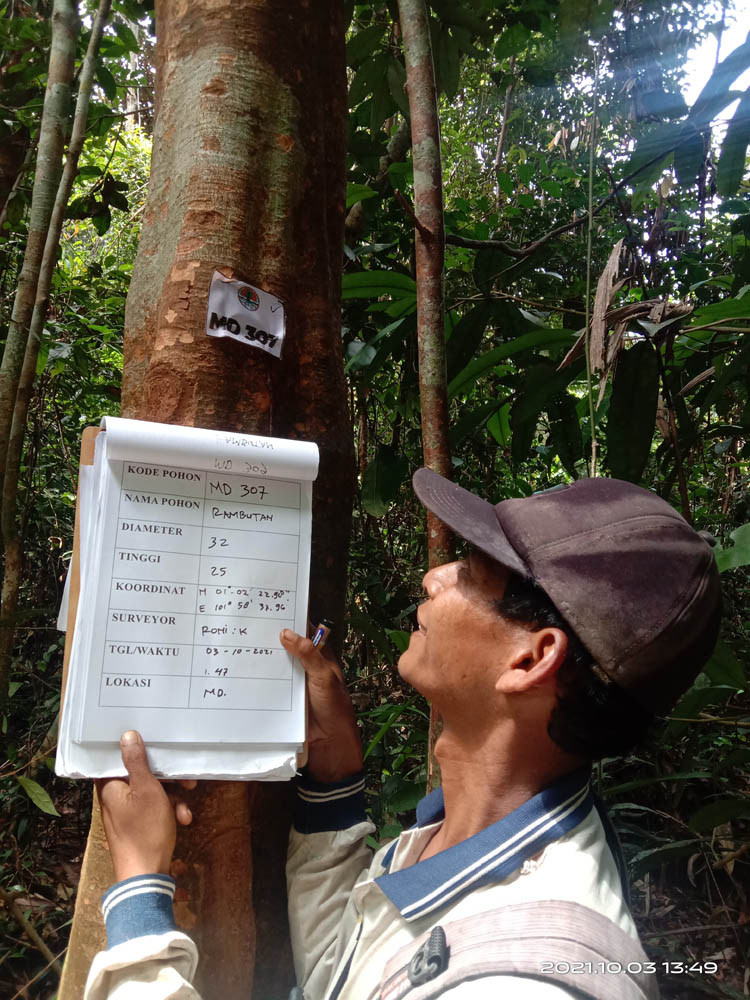 MD 307
MD 302
KODE POHON MD 307
NAMA POHON RAMBUTAN
DIAMETER 32
TINGGI 25
KOORDINAT N 01°-02' 22.90"
E 101°58' 37.96
SURVEYOR ROMI : K
TGL/WAKTU 03-10-2021
1.47
LOKASI MD.
2021.10.03 13:49